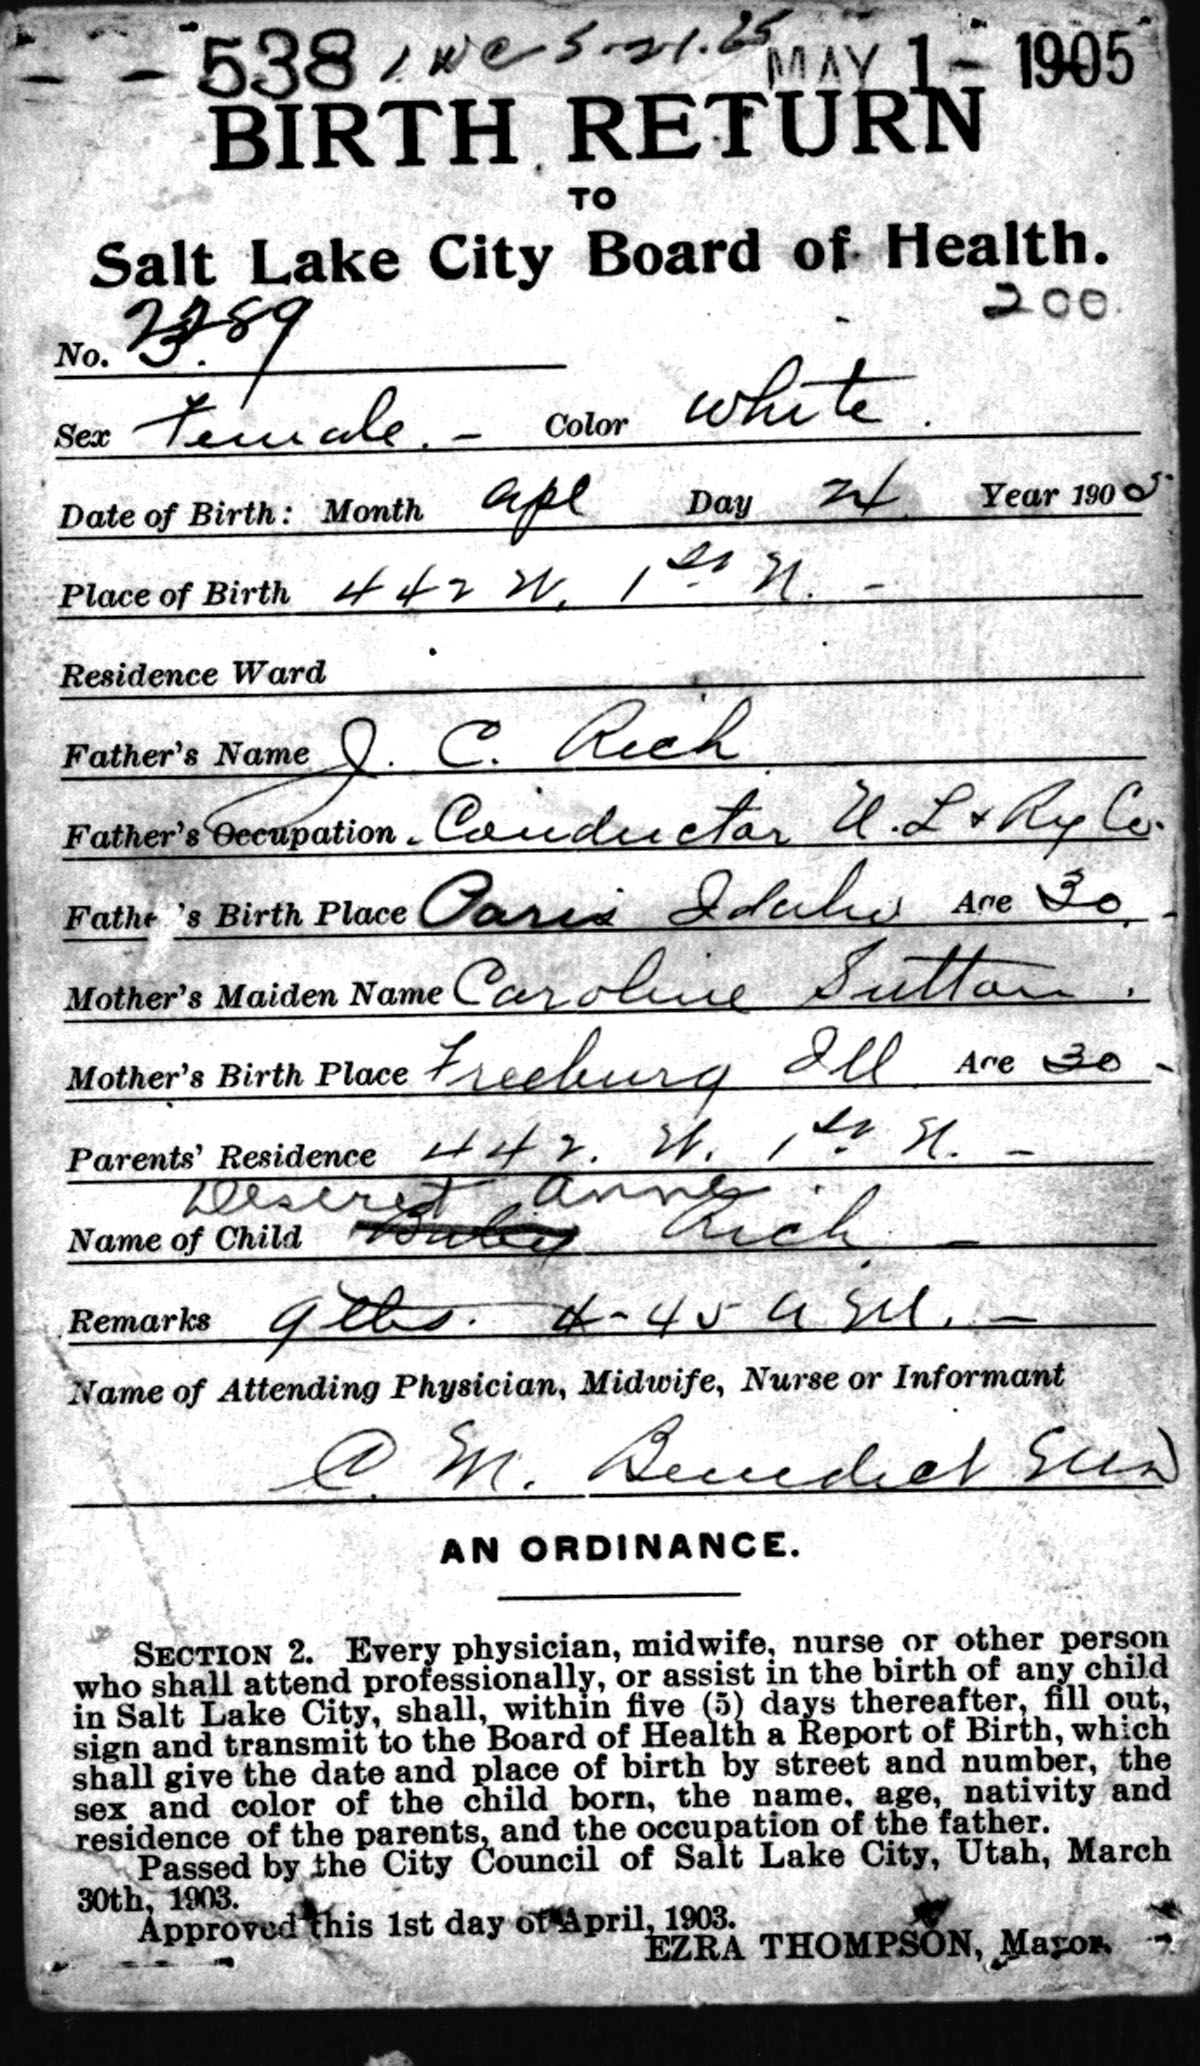 538 5-21.25 MAY 1- 1905
BIRTH RETURN
TO
Salt Lake City Board of Health.
200
No. 89
Sex Female. - Color White.
Date of Birth: Month Apl Day 24 Year 1905
Place of Birth 442 W. 1st N. -
Residence Ward
Father's Name J. C. Rich
Father's Occupation Conductor U. L & Ry Co.
Fathe 's Birth Place Paris Idaho Age 30.
Mother's Maiden Name Caroline Sutton.
Mother's Birth Place Freeburg Ill Age 30 -
Parents' Residence 442. W. 1st N. -
Deseret Anne
Name of Child Baby Rich -
Remarks 9 lbs. 4-45 A M. -
Name of Attending Physician, Midwife, Nurse or Informant
C. M. Benedict MD
AN ORDINANCE.
SECTION 2. Every physician, midwife, nurse or other person
who shall attend professionally, or assist in the birth of any child
in Salt Lake City, shall, within five (5) days thereafter, fill out,
sign and transmit to the Board of Health a Report of Birth, which
shall give the date and place of birth by street and number, the
sex and color of the child born, the name, age, nativity and
residence of the parents, and the occupation of the father.
Passed by the City Council of Salt Lake City, Utah, March
30th, 1903.
Approved this 1st day of April, 1903.
EZRA THOMPSON, Mayor.